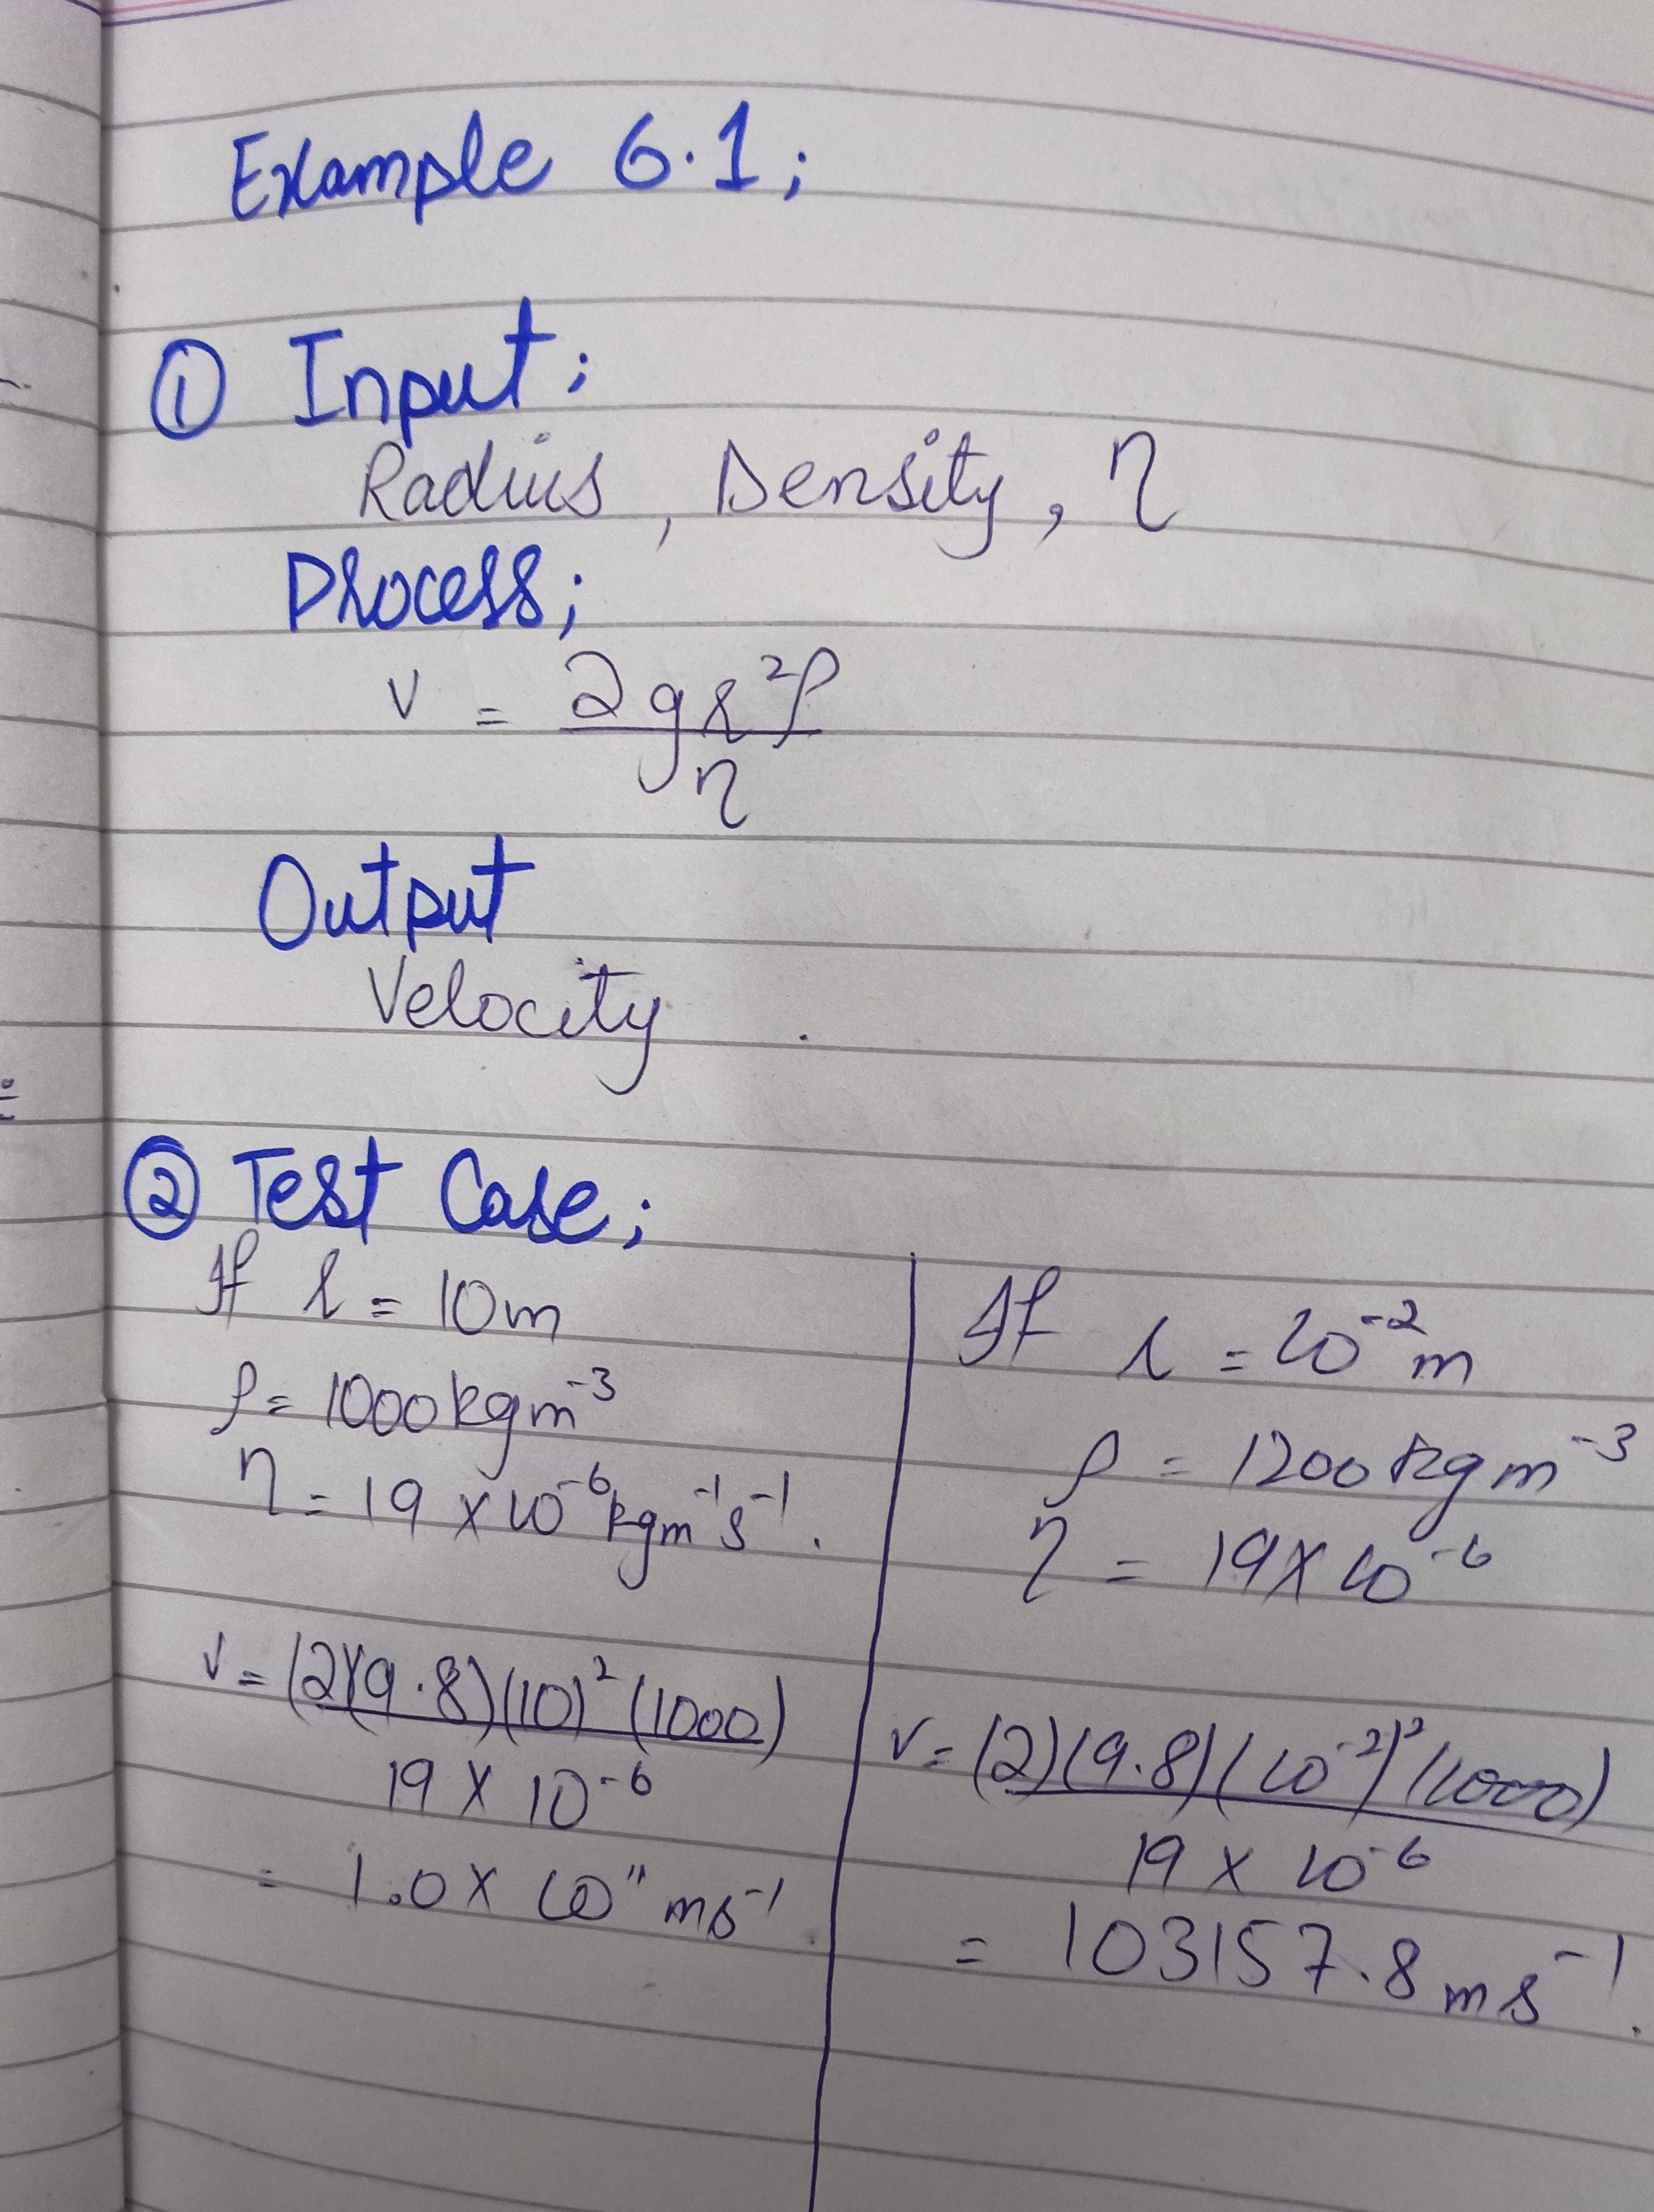 Example 6.1;
① Input;
Radius, Density, η
Process;
v = 2gr²ρ
η
Output
Velocity
② Test Case;
If r = 10m
ρ = 1000kgm⁻³
η = 19 × 10⁻⁶kgm⁻¹s⁻¹.
v = (2)(9.8)(10)²(1000)
19 × 10⁻⁶
= 1.0 × 10¹¹ ms⁻¹
If r = 10⁻²m
ρ = 1200kgm⁻³
η = 19 × 10⁻⁶
v = (2)(9.8)(10⁻²)²(1000)
19 × 10⁻⁶
= 103157.8 ms⁻¹.